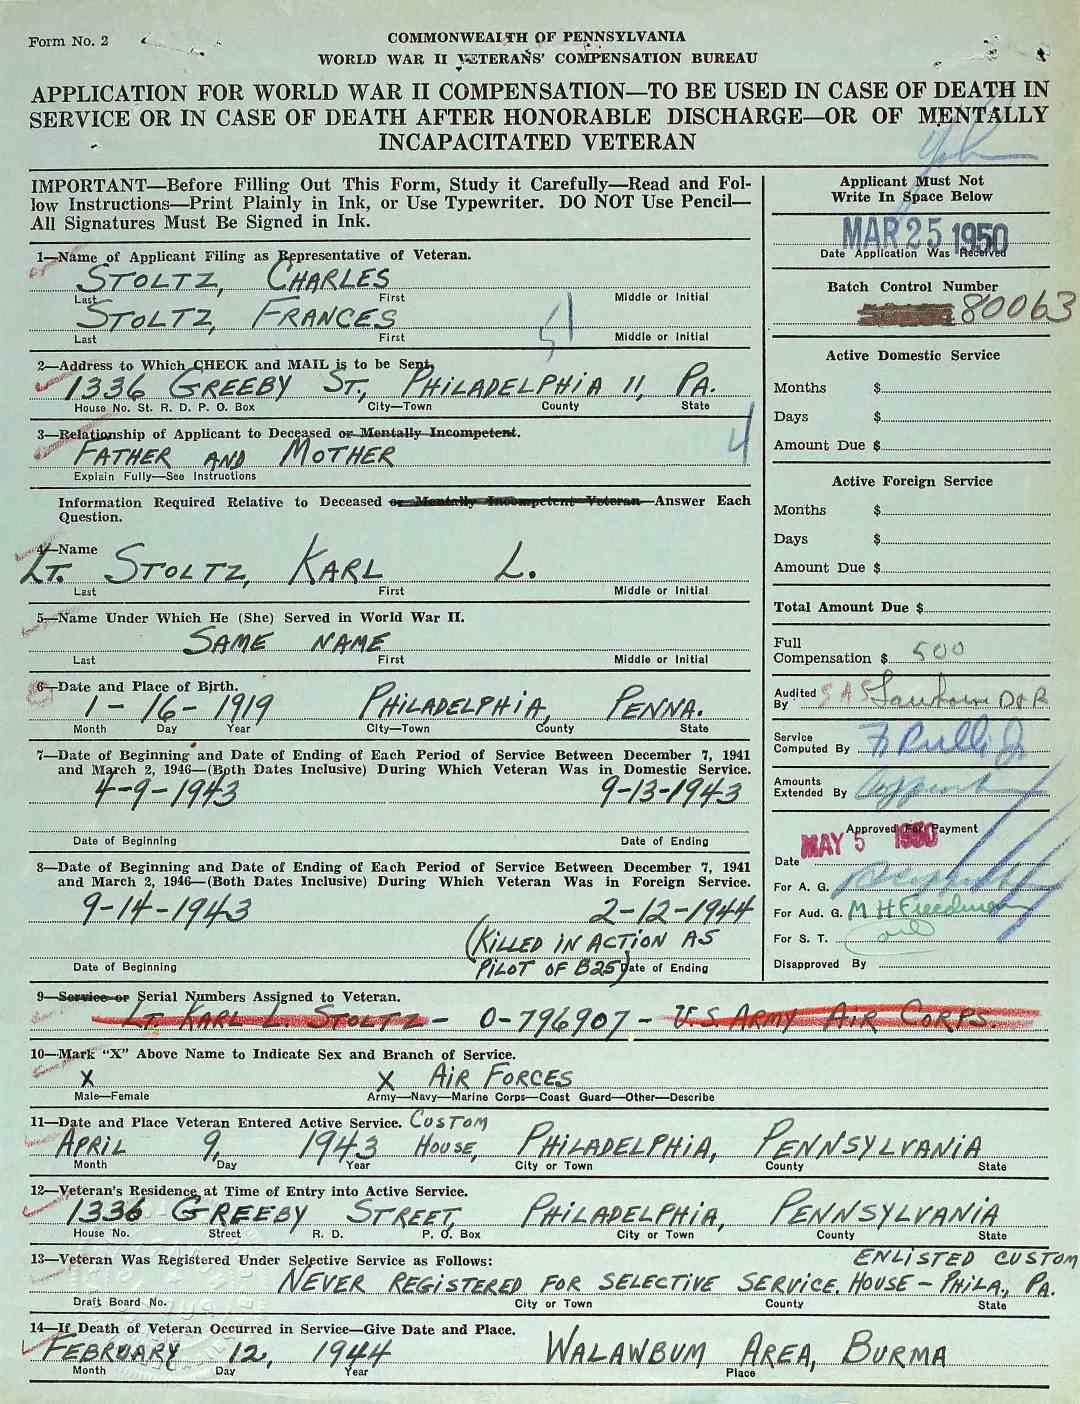 Form No. 2
COMMONWEALTH OF PENNSYLVANIA
WORLD WAR II VETERANS' COMPENSATION BUREAU
APPLICATION FOR WORLD WAR II COMPENSATION—TO BE USED IN CASE OF DEATH IN
SERVICE OR IN CASE OF DEATH AFTER HONORABLE DISCHARGE—OR OF MENTALLY
INCAPACITATED VETERAN
IMPORTANT—Before Filling Out This Form, Study it Carefully—Read and Fol-
low Instructions—Print Plainly in Ink, or Use Typewriter. DO NOT Use Pencil—
All Signatures Must Be Signed in Ink.
1—Name of Applicant Filing as Representative of Veteran.
STOLTZ, CHARLES
Last First Middle or Initial
STOLTZ, FRANCES
Last First Middle or Initial
2—Address to Which CHECK and MAIL is to be Sent.
1336 GREEBY ST., PHILADELPHIA 11, PA.
House No. St. R. D. P. O. Box City—Town County State
3—Relationship of Applicant to Deceased or Mentally Incompetent.
FATHER AND MOTHER
4
Explain Fully—See Instructions
Information Required Relative to Deceased or Mentally Incompetent Veteran—Answer Each
Question.
4—Name
LT. STOLTZ, KARL L.
Last First Middle or Initial
5—Name Under Which He (She) Served in World War II.
SAME NAME
Last First Middle or Initial
6—Date and Place of Birth.
1-16-1919 PHILADELPHIA, PENNA.
Month Day Year City—Town County State
7—Date of Beginning and Date of Ending of Each Period of Service Between December 7, 1941
and March 2, 1946—(Both Dates Inclusive) During Which Veteran Was in Domestic Service.
4-9-1943 9-13-1943
Date of Beginning Date of Ending
8—Date of Beginning and Date of Ending of Each Period of Service Between December 7, 1941
and March 2, 1946—(Both Dates Inclusive) During Which Veteran Was in Foreign Service.
9-14-1943 2-12-1944
(KILLED IN ACTION AS
PILOT OF B25)
Date of Beginning Date of Ending
Applicant Must Not
Write In Space Below
MAR 25 1950
Date Application Was Received
Batch Control Number
80063
Active Domestic Service
Months $
Days $
Amount Due $
Active Foreign Service
Months $
Days $
Amount Due $
Total Amount Due $
Full
Compensation $ 500
Audited
By SAS
Service
Computed By
Amounts
Extended By
Approved For Payment
Date MAY 5 1950
For A. G.
For Aud. G. M H Freedman
For S. T.
Disapproved By
9—Service or Serial Numbers Assigned to Veteran.
LT. KARL L. STOLTZ - O-796907 - U.S. ARMY AIR CORPS.
10—Mark "X" Above Name to Indicate Sex and Branch of Service.
X X AIR FORCES
Male—Female Army—Navy—Marine Corps—Coast Guard—Other—Describe
11—Date and Place Veteran Entered Active Service. CUSTOM
APRIL 9, 1943 HOUSE, PHILADELPHIA, PENNSYLVANIA
Month Day Year City or Town County State
12—Veteran's Residence at Time of Entry into Active Service.
1336 GREEBY STREET, PHILADELPHIA, PENNSYLVANIA
House No. Street R. D. P. O. Box City or Town County State
13—Veteran Was Registered Under Selective Service as Follows: ENLISTED CUSTOM
NEVER REGISTERED FOR SELECTIVE SERVICE. HOUSE - PHILA., PA.
Draft Board No. City or Town County State
14—If Death of Veteran Occurred in Service—Give Date and Place.
FEBRUARY 12, 1944 WALAWBUM AREA, BURMA
Month Day Year Place